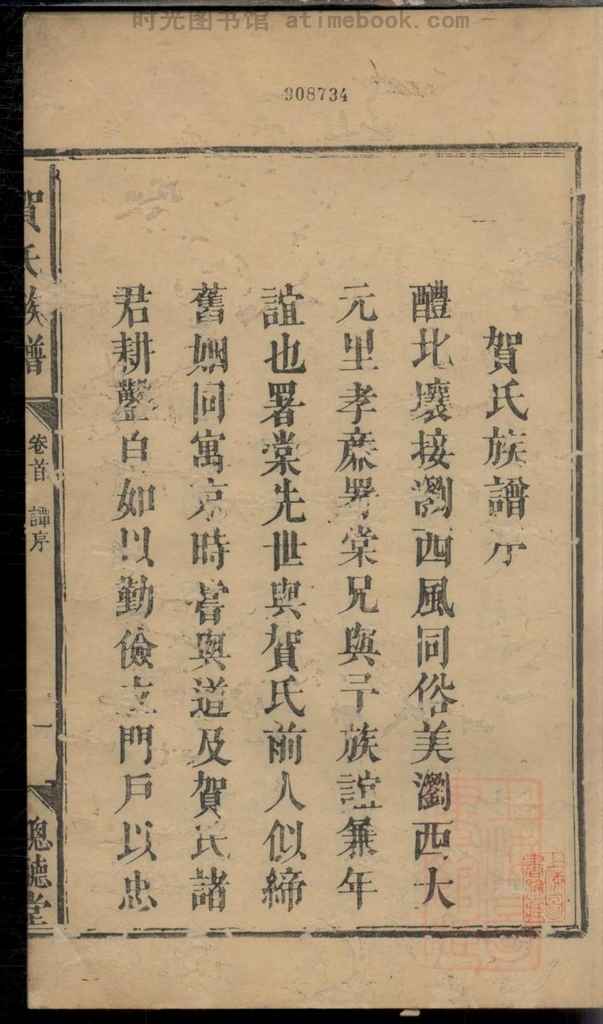 时光图书馆 - atimebook.com
308734
賀氏族譜序
醴北壤接瀏西風同俗美瀏西大
元里孝廉署棠兄與予族誼兼年
誼也署棠先世與賀氏前人似締
舊姻同寓京時嘗與道及賀氏諸
君耕鑿自如以勤儉立門戶以忠
賀氏族譜
卷首 譜序
一
聰聽堂